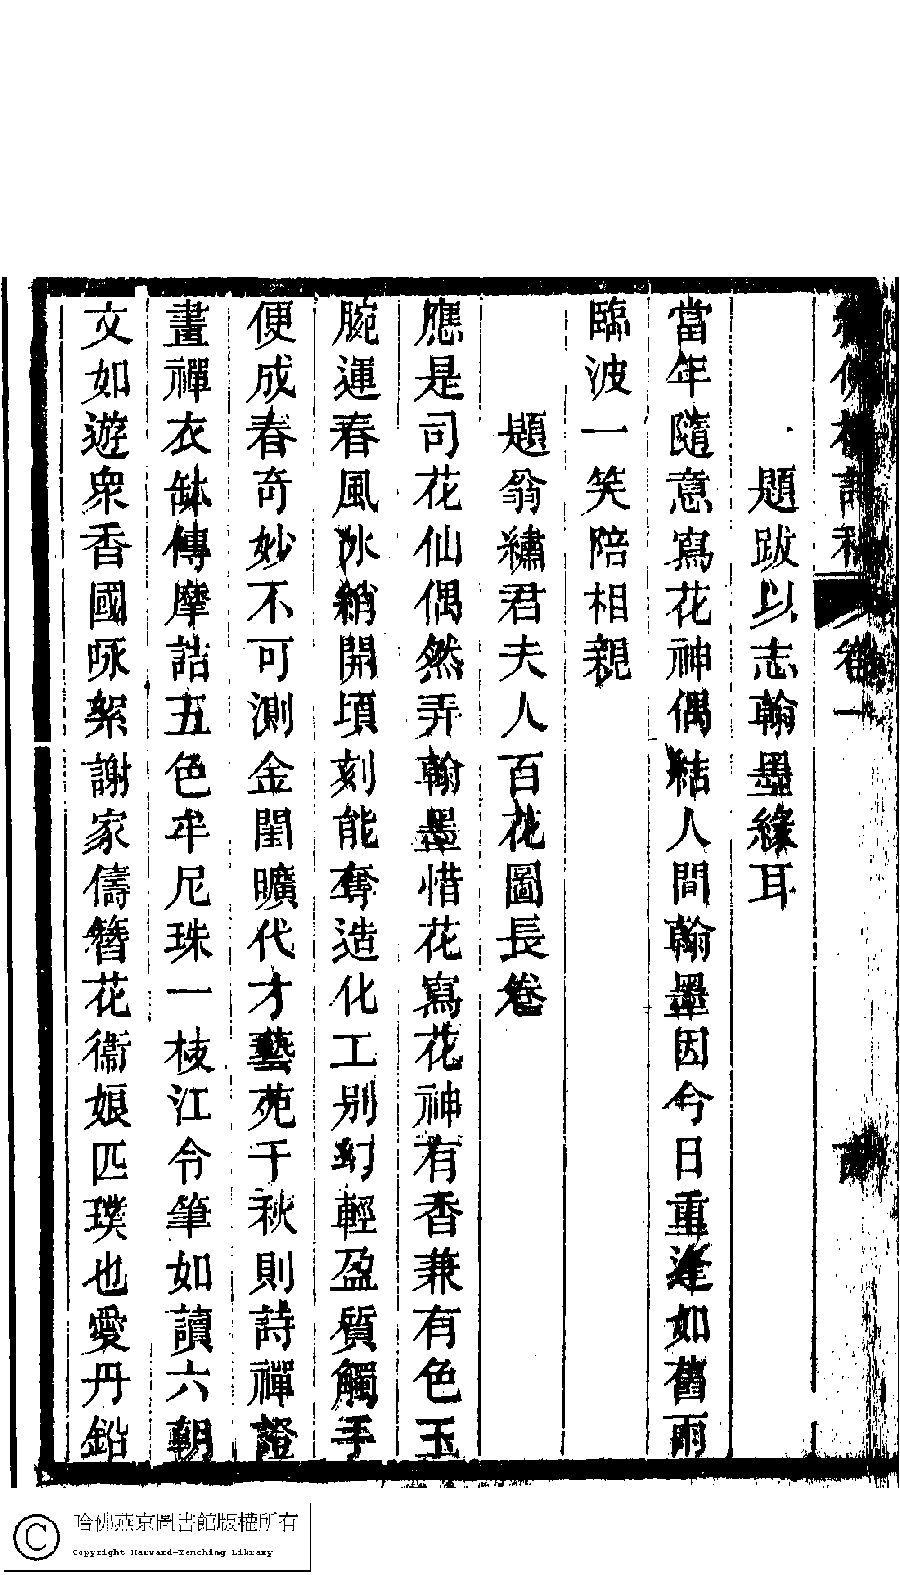 繡佛樓詩稿 卷一
題跋以志翰墨緣耳
當年隨意寫花神偶結人間翰墨因今日重逢如舊雨
臨波一笑陪相親
題翁繡君夫人百花圖長卷
應是司花仙偶然弄翰墨惜花寫花神有香兼有色玉
腕運春風冰綃開頃刻能奪造化工别幻輕盈質觸手
便成春奇妙不可測金閨曠代才藝苑千秋則詩禪證
畫禪衣缽傳摩詰五色牟尼珠一枝江令筆如讀六朝
文如遊衆香國咏絮謝家儔簪花衞娘匹璞也愛丹鉛
哈佛燕京圖書館版權所有
Copyright Harvard-Yenching Library